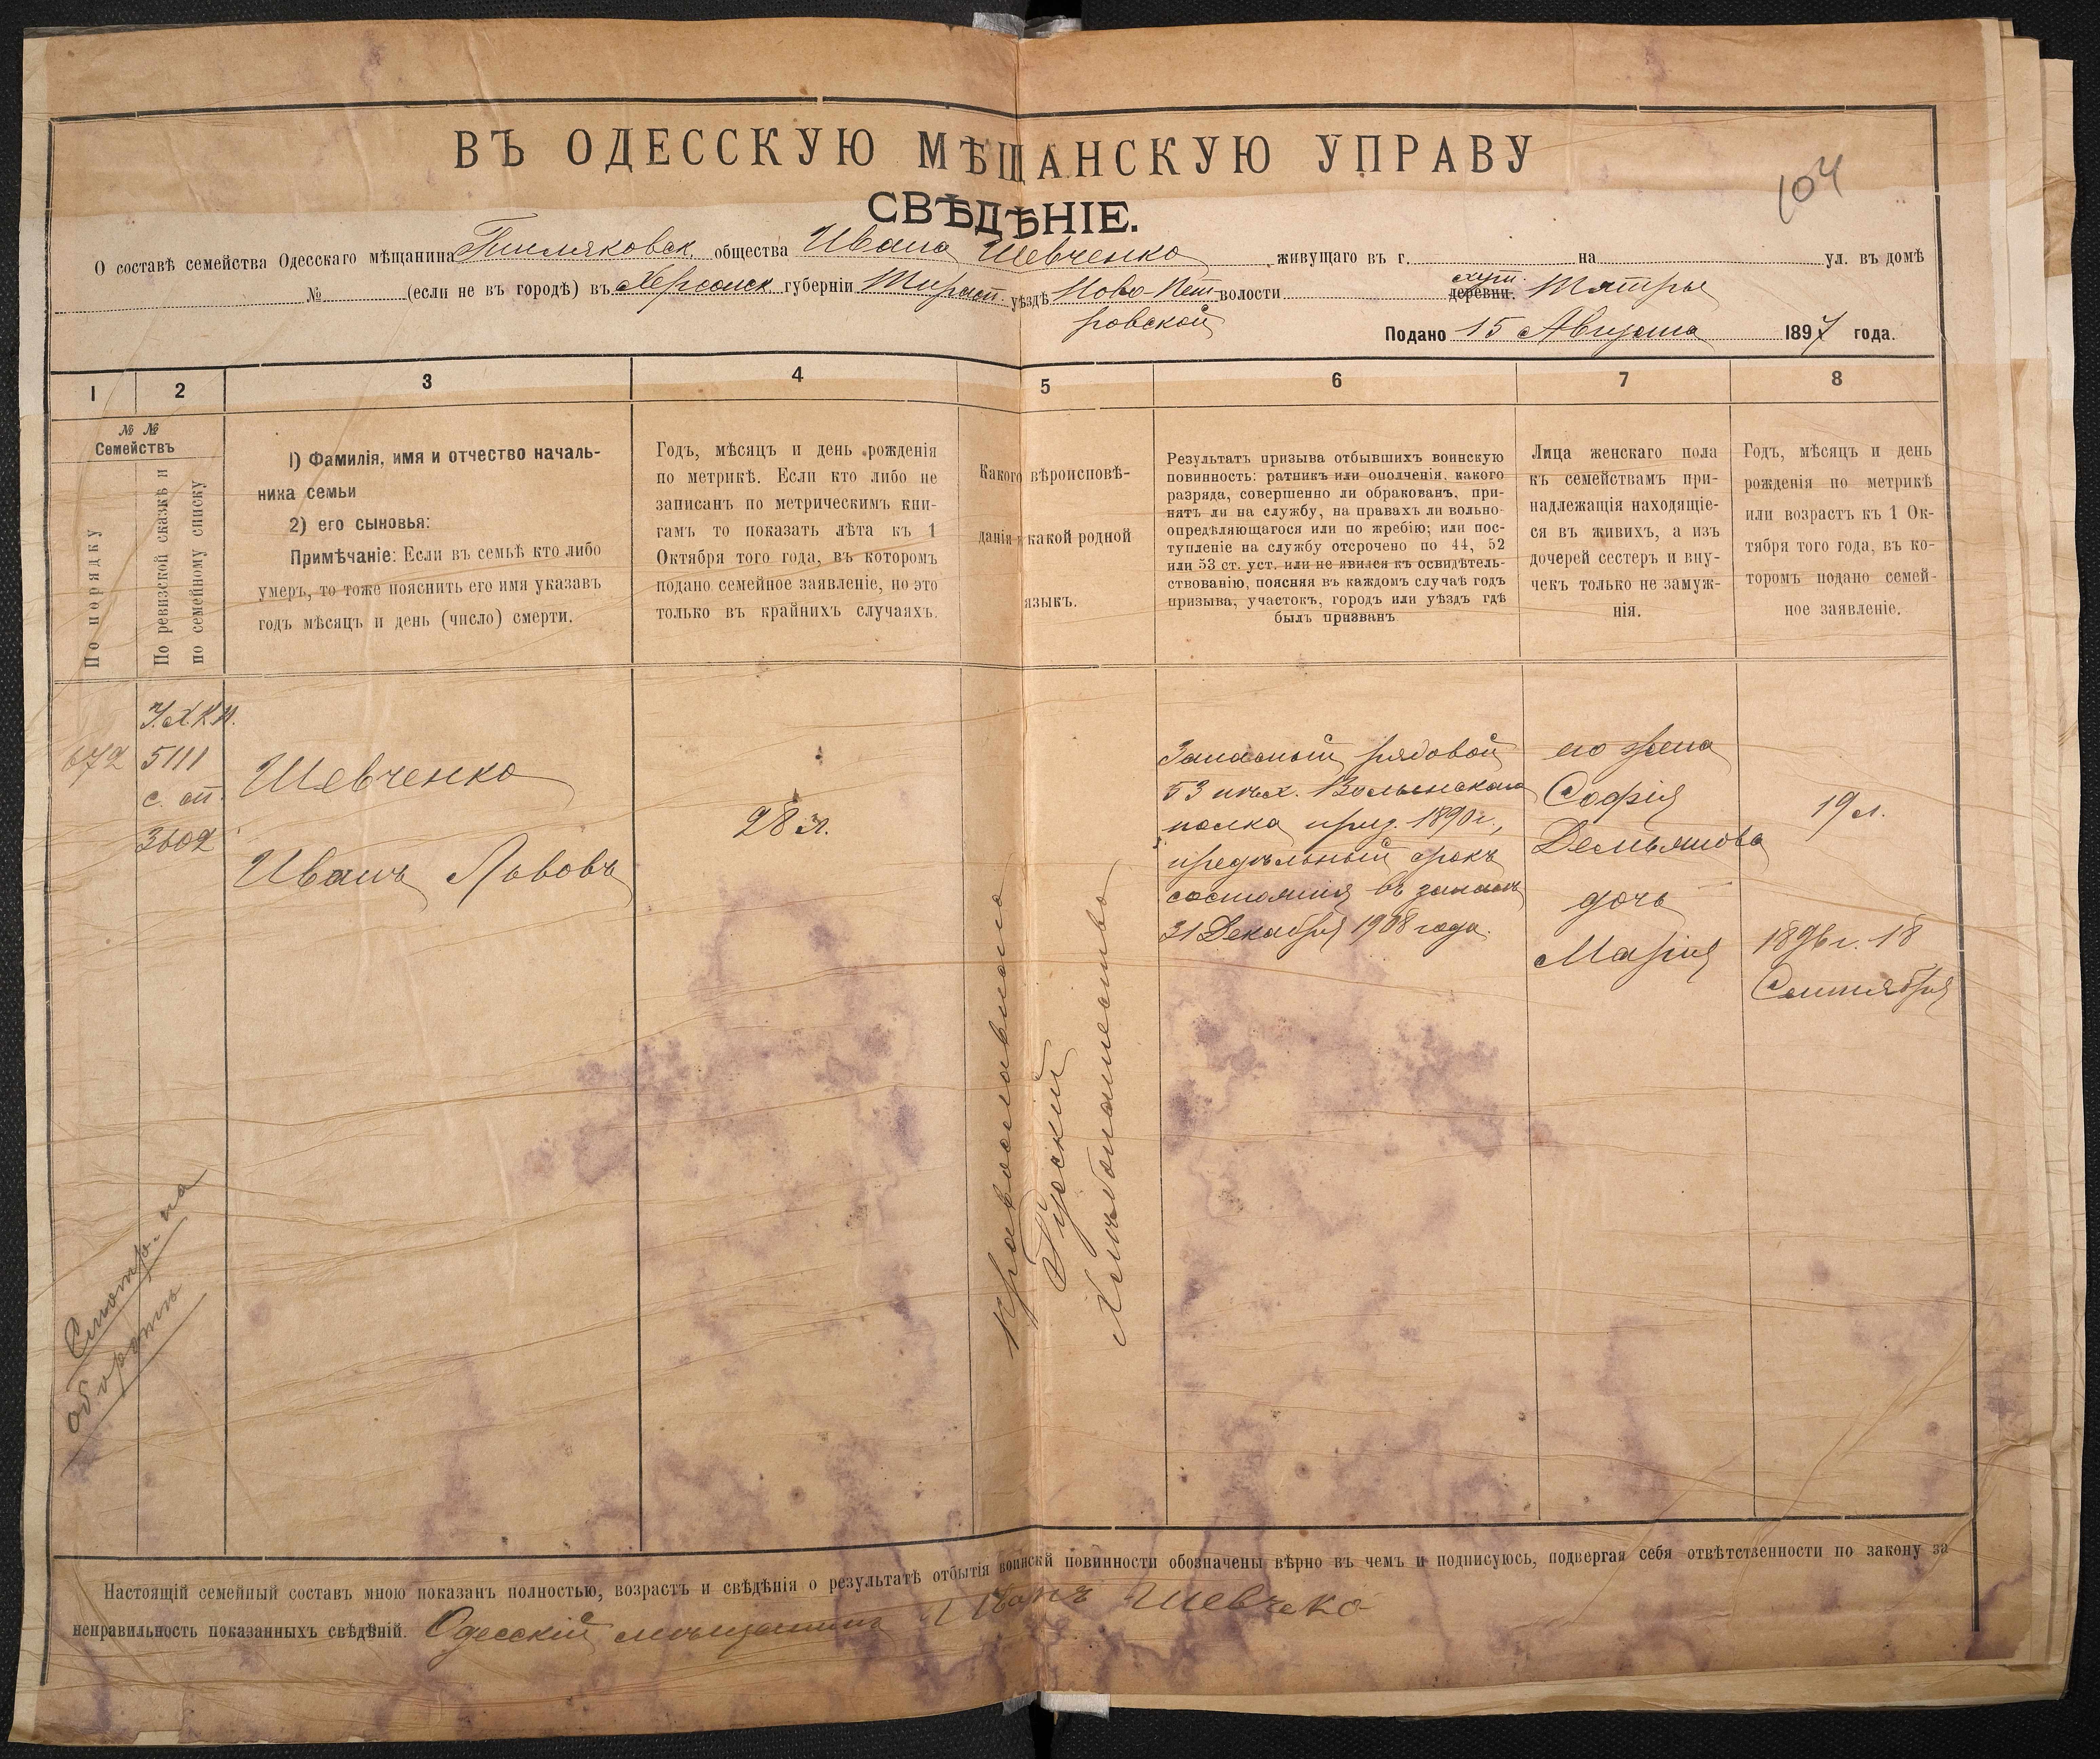 104
ВЪ ОДЕССКУЮ МѢЩАНСКУЮ УПРАВУ
СВѢДѢНІЕ.
О составѣ семейства Одесскаго мѣщанина Гниляковск. общества Ивана Шевченко живущаго въ г. на ул. въ домѣ
№ (если не въ городѣ) въ Херсонск. губерніи Тирасп. уѣздѣ Ново-Пет- волости хут. деревни. Тятры
ровской
Подано 15 Августа 1897 года.
1 2 3 4 5 6 7 8
№ №
Семействъ
По порядку
По ревизской сказкѣ и
по семейному списку
1) Фамилія, имя и отчество началь-
ника семьи
2) его сыновья:
Примѣчаніе: Если въ семьѣ кто либо
умеръ, то тоже пояснить его имя указавъ
годъ мѣсяцъ и день (число) смерти.
Годъ, мѣсяцъ и день рожденія
по метрикѣ. Если кто либо не
записанъ по метрическимъ кни-
гамъ то показать лѣта къ 1
Октября того года, въ которомъ
подано семейное заявленіе, но это
только въ крайнихъ случаяхъ.
Какого вѣроисповѣ-
данія и какой родной
языкъ.
Результатъ призыва отбывшихъ воинскую
повинность: ратникъ или ополченія, какого
разряда, совершенно ли обракованъ, при-
нятъ ли на службу, на правахъ ли вольно-
опредѣляющагося или по жребію; или пос-
тупленіе на службу отсрочено по 44, 52
или 53 ст. уст. или не явился къ освидѣтель-
ствованію, поясняя въ каждомъ случаѣ годъ
призыва, участокъ, городъ или уѣздъ гдѣ
былъ призванъ
Лица женскаго пола
къ семействамъ при-
надлежащія находящіе-
ся въ живихъ, а изъ
дочерей сестеръ и вну-
чекъ только не замуж-
нія.
Годъ, мѣсяцъ и день
рожденія по метрикѣ
или возрастъ къ 1 Ок-
тября того года, въ ко-
торомъ подано семей-
ное заявленіе.
672
5111
с. сп.
3602
Шевченко
Иванъ Львовъ
28 л.
Православнаго
Русскій
Хлѣбопашество
Запасный рядовой
53 пѣх. Волынскаго
полка приз. 1890 г.,
предѣльный срокъ
состоянія въ запасѣ
31 Декабря 1908 года.
его жена
Софія
Демьянова
дочь
Марія
19 л.
1896 г. 18
Сентября
Смотр. на
оборотѣ
Настоящій семейный составъ мною показанъ полностью, возрастъ и свѣдѣнія о результатѣ отбытія воинскй повинности обозначены вѣрно въ чемъ и подписуюсь, подвергая себя отвѣтственности по закону за
неправильность показанныхъ свѣдѣній. Одесскій мѣщанинъ Иванъ Шевчеко